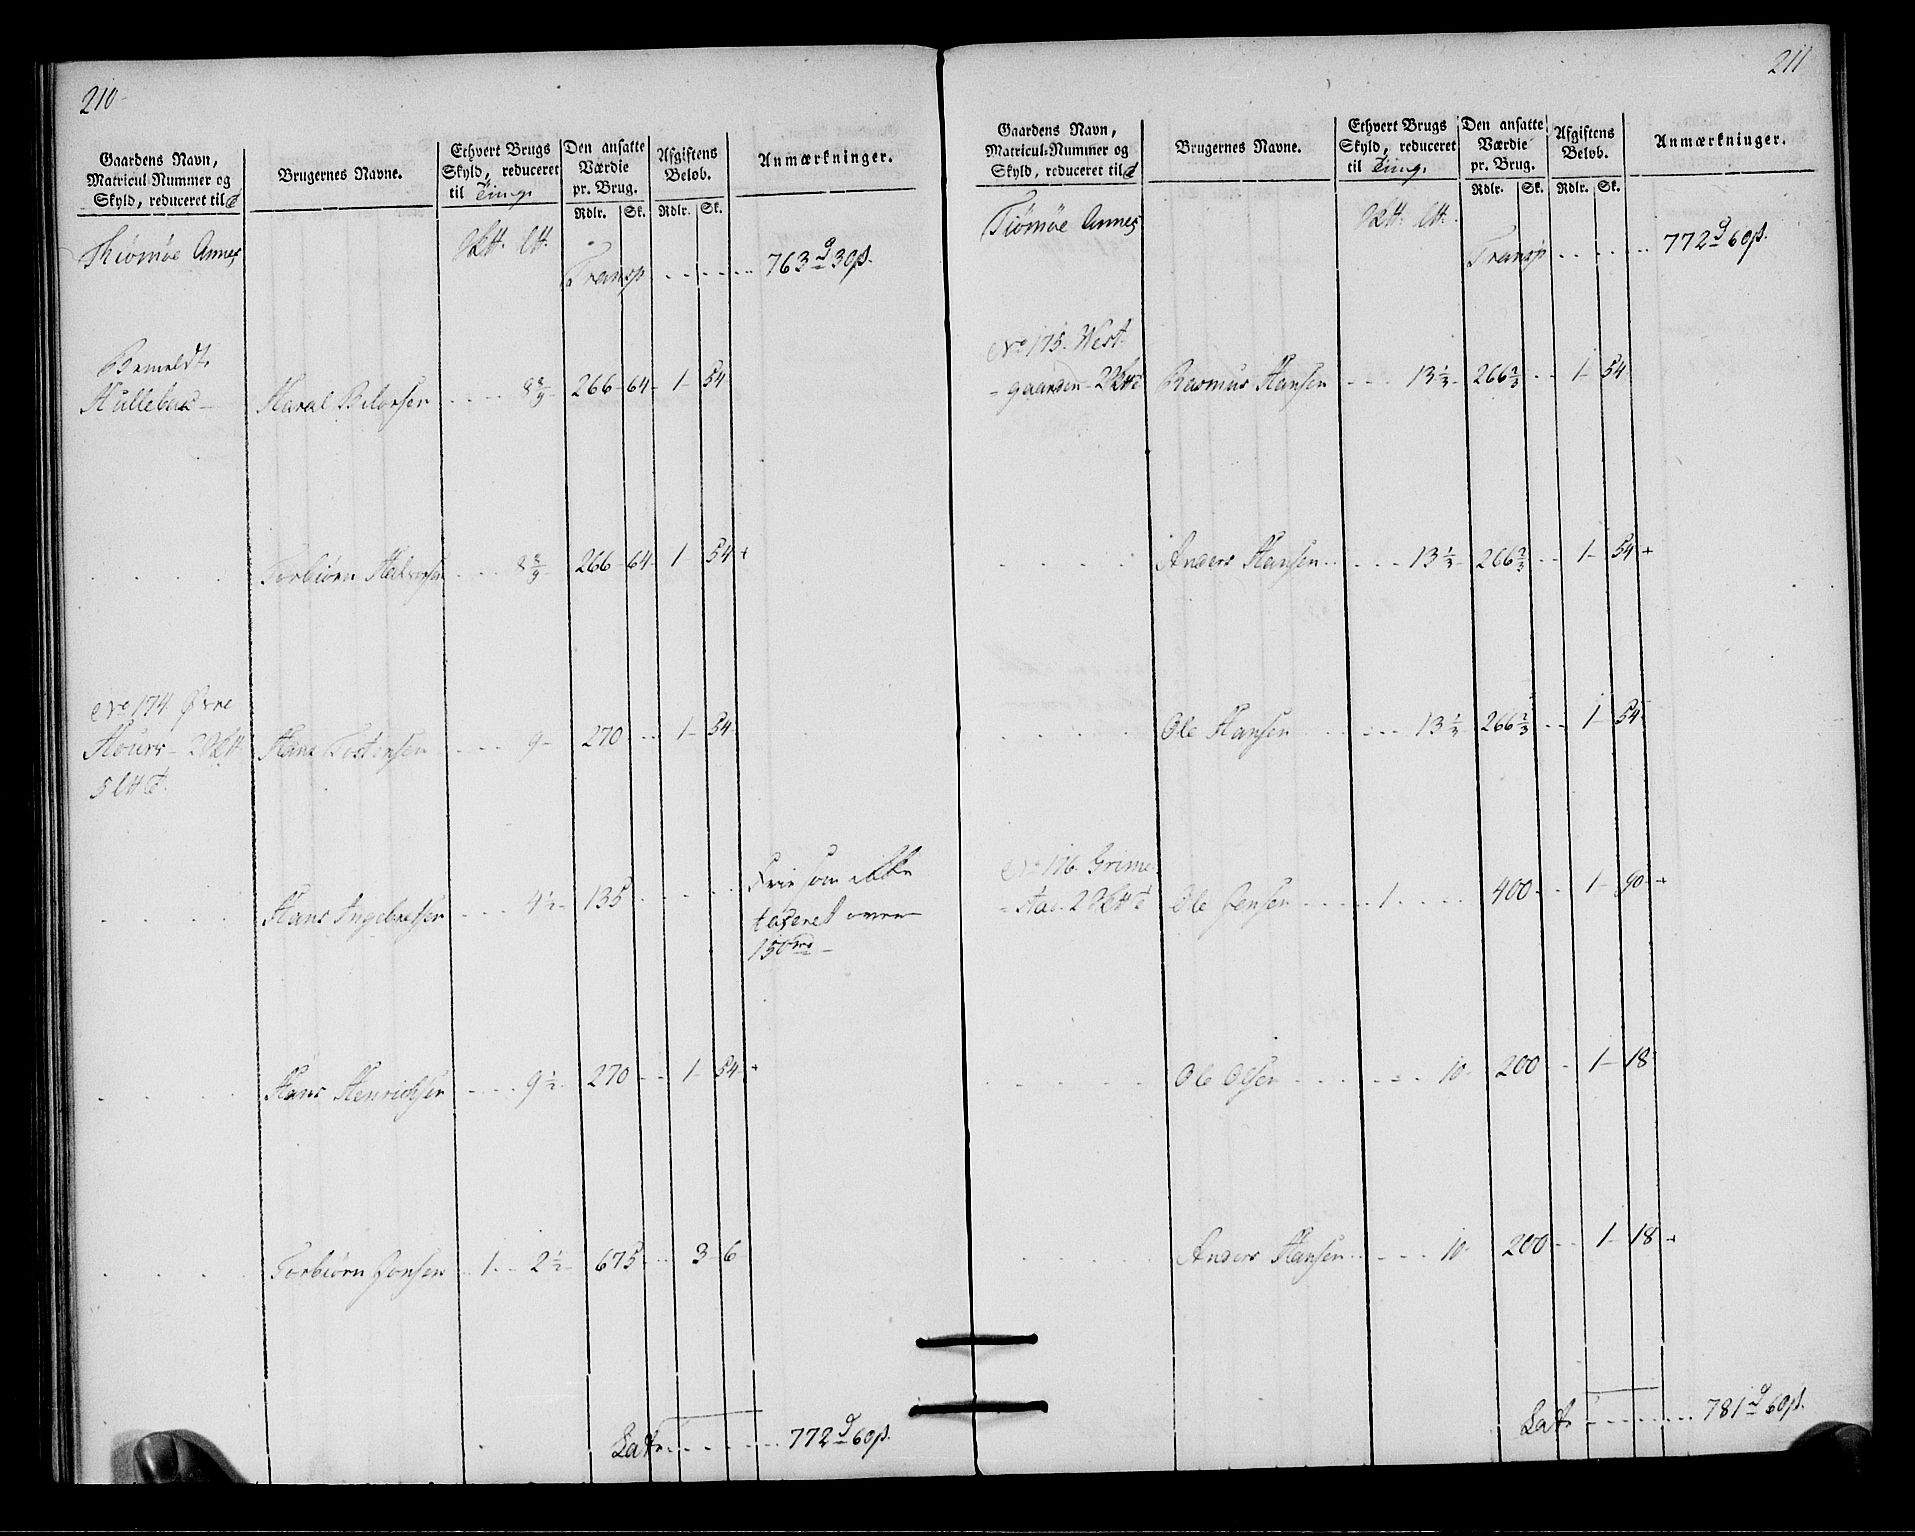 210
Gaardens Navn,
Matricul-Nummer og
Skyld, reduceret til
Brugernes Navne.
Ethvert Brugs
Skyld, reduceret
til Tung.
Den ansatte
Værdie
pr. Brug.
Rdlr. Sk.
Afgiftens
Beløb.
Rdlr. Sk.
Anmærkninger.
Tiømøe Annex
Transp . . . . . . 763 d 30 ß.
Bemeldte
Hullebac — Haral Pelersen . . . . 8 8/9 266 - 64 - 1 - 54
. . . . Torbiørn Halvorsen . . . 8 8/9 266 - 64 - 1 - 54 +
No 174. Øvre
Hours - 2
5
Hans Tostensen . . . . 9 - 270 . . 1 - 54
. . . . Hans Ingebretsen . . . 4 1/2 - 135 . . . . Frie som ikke
taxeret over
150
. . . . Hans Henrichsen . . . . 9 1/2 - 270 . . 1 - 54 - +
. . . . Torbiørn Jonsen . . 1 . . 2 1/2 - 675 . . . 3 - 6
Lat. . . . . . . 772 d 60 ß.
211
Gaardens Navn,
Matricul-Nummer og
Skyld, reduceret til
Brugernes Navne.
Ethvert Brugs
Skyld, reduceret
til Tung.
Den ansatte
Værdie
pr. Brug.
Rdlr. Sk.
Afgiftens
Beløb.
Rdlr. Sk.
Anmærkninger.
Tiømøe Annex
Transp . . . . . . 772 d 60 ß.
No 175. West-
- gaarden - 2 Rasmus Hansen . . . 13 1/3 - 266 2/3 . . 1 - 54
. . . . Anders Hansen . . . . . 13 1/3 - 266 2/3 . . 1 - 54 +
. . . . Ole Hansen . . . . . 13 1/3 266 2/3 . . 1 - 54
No 176. Grime-
- stad. 2 Ole Jensen . . . . . 1 . . . . 400 - . . 1 - 90 - +
. . . . Ole Olsen . . . . . . . 10 - 200 . . 1 - 18
. . . . Anders Hansen . . . . . 10 - 200 . . 1 - 18 +
Lat. . . . . . . . 781 d 60 ß.